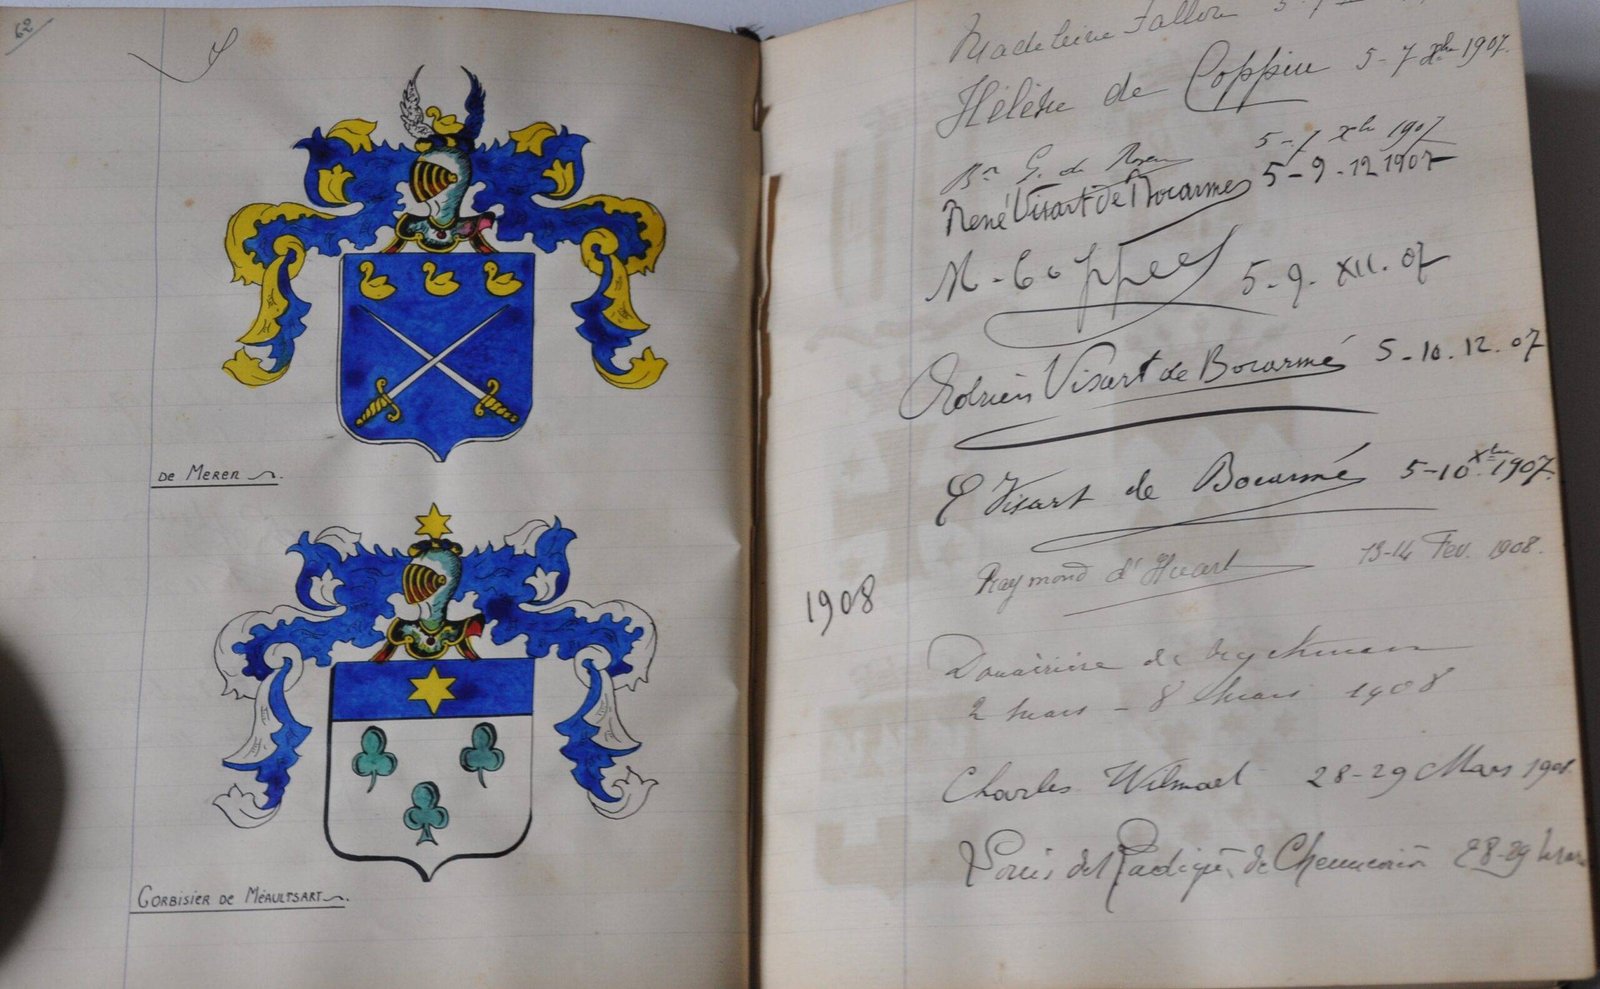 62
de Meren
Corbisier de Méaultsart
Madeleine Fallon 5-7
Hélène de Coppin 5-7 Xbre 1907.
Bon G. de Rosen 5-7 Xbre 1907
René Visart de Bocarmé 5-9-12 1907
M. Coppée 5-9. XII. 07
Adrien Visart de Bocarmé 5-10.12.07
E Visart de Bocarmé 5-10 Xbre 1907.
Raymond d'Huart 13-14 Fev. 1908.
1908
Douairière de
2 mars - 8 mars 1908
Charles Wilmaet 28-29 Mars 1908.
Louis de Radiguès de Chennevière 28-29 Mars